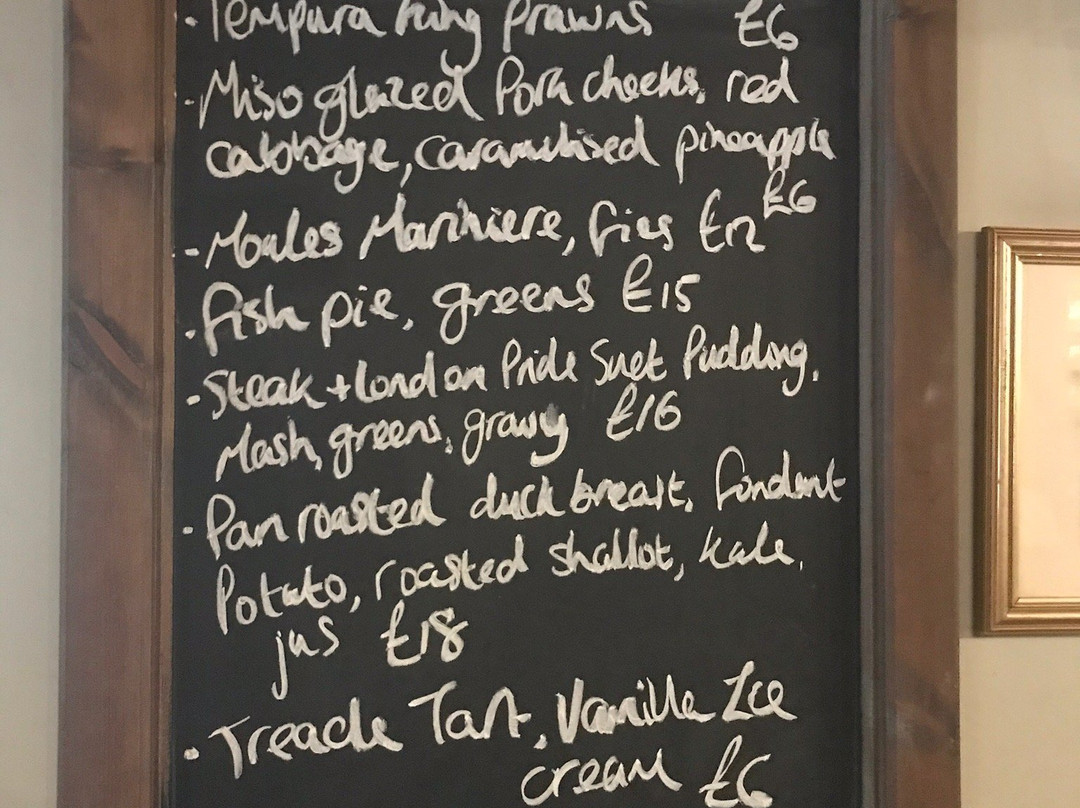 · Tempura King Prawns £6
· Miso glazed Pork cheeks, red
cabbage, caramelised pineapple
£6
- Moules Mariniere, fries £12
· fish pie, greens £15
- Steak + London Pride Suet Pudding,
Mash, greens, gravy £16
· Pan roasted duck breast, fondant
Potato, roasted shallot, kale,
jus £18
· Treacle Tart, Vanilla Ice
cream £6